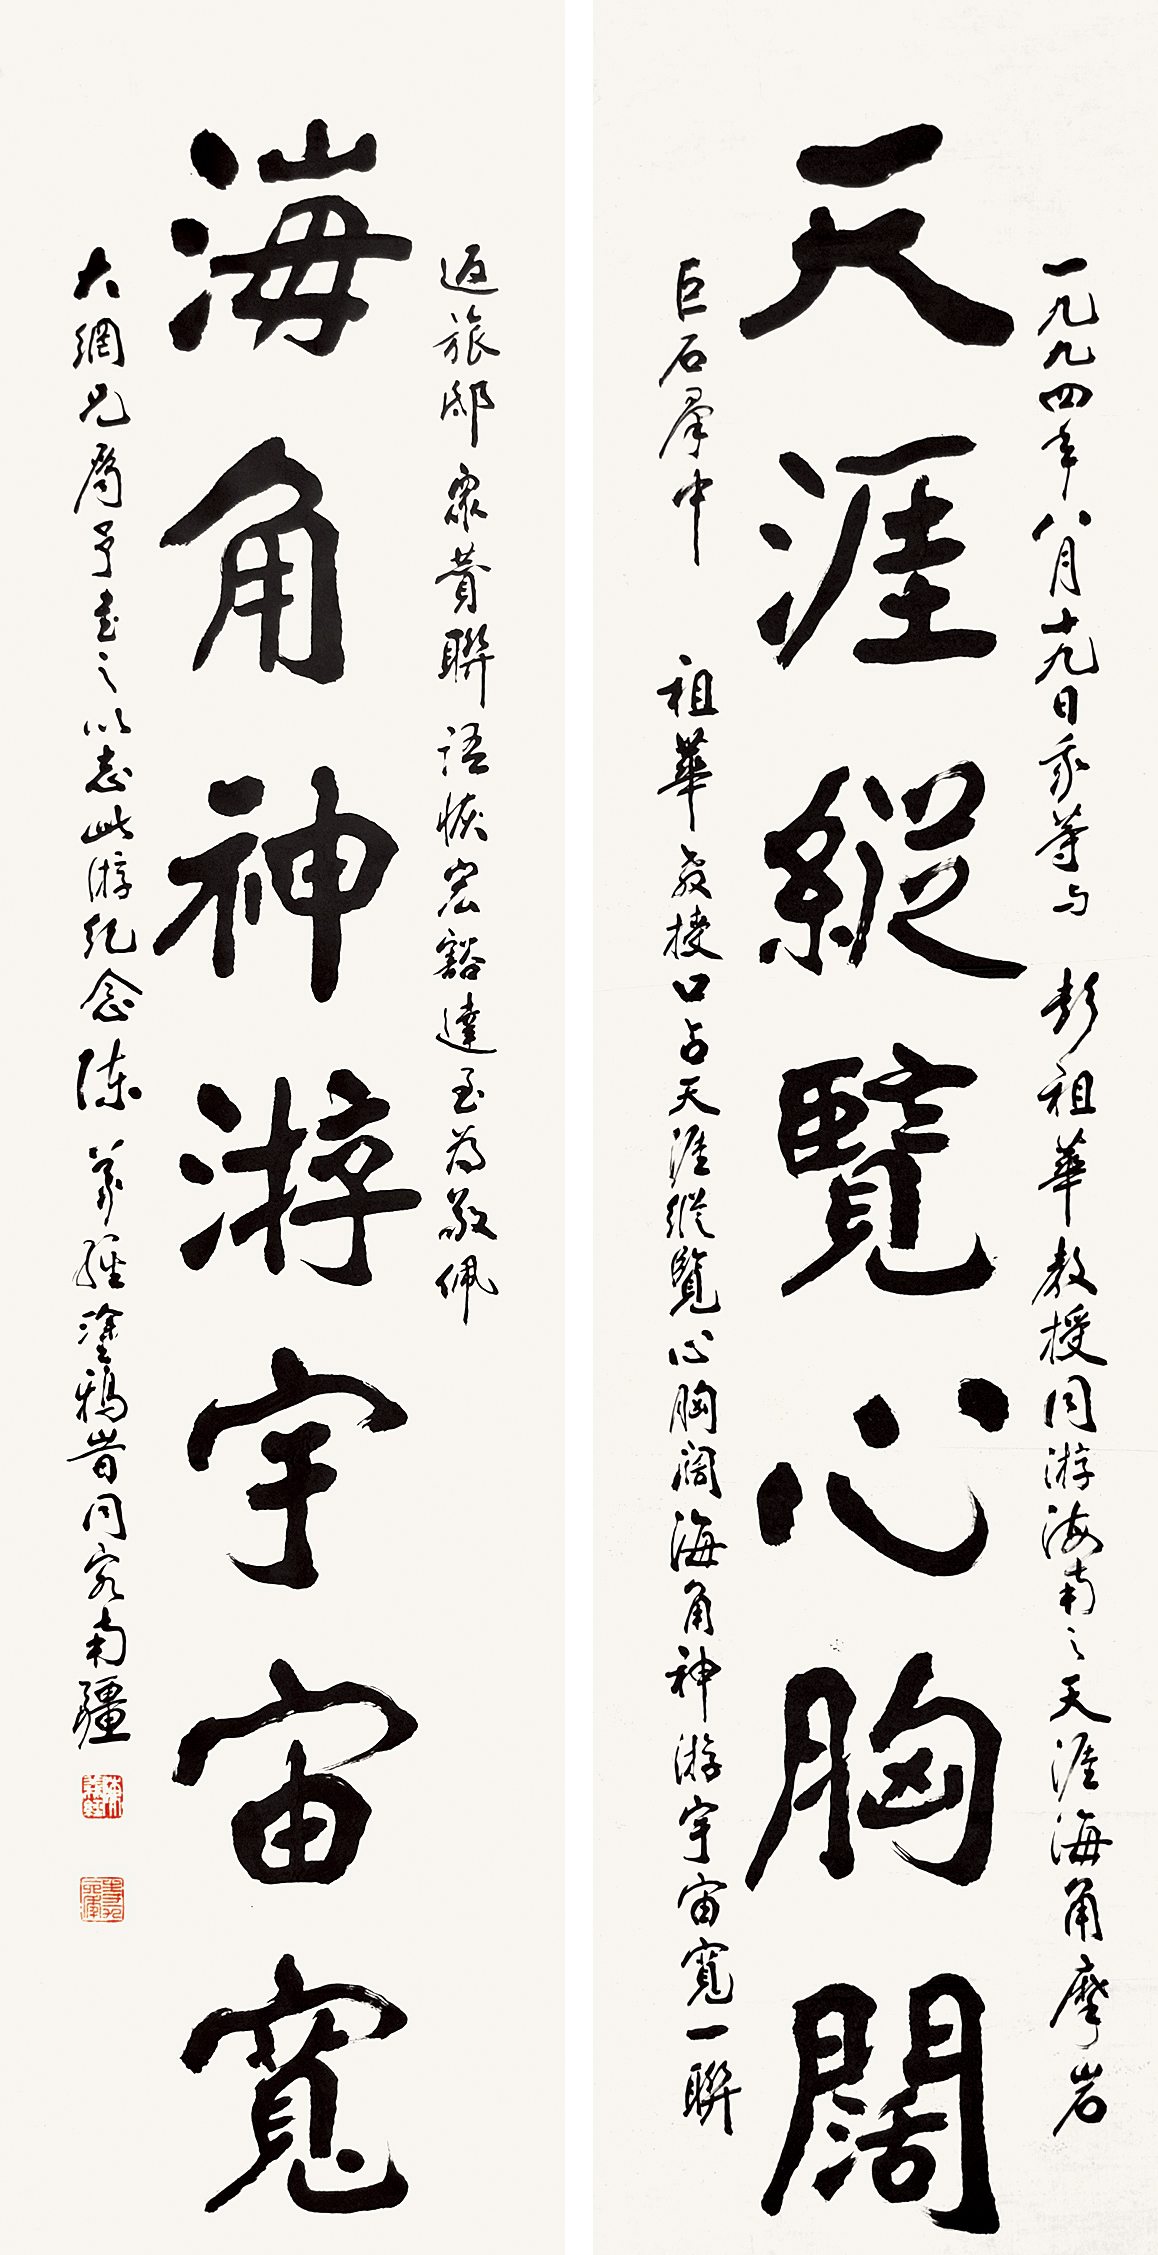 一九九四年八月十九日我等与彭祖華教授同游海南之天涯海角摩岩
天涯縱覽心胸闊
巨石羣中祖華教授口占天涯縱覽心胸闊海角神游宇宙寬一聯
返旅邸眾賛聯語恢宏豁達至為敬佩
海角神游宇宙寬
大綱兄属予書之以志此游紀念陳義經塗鴉旹同客南疆